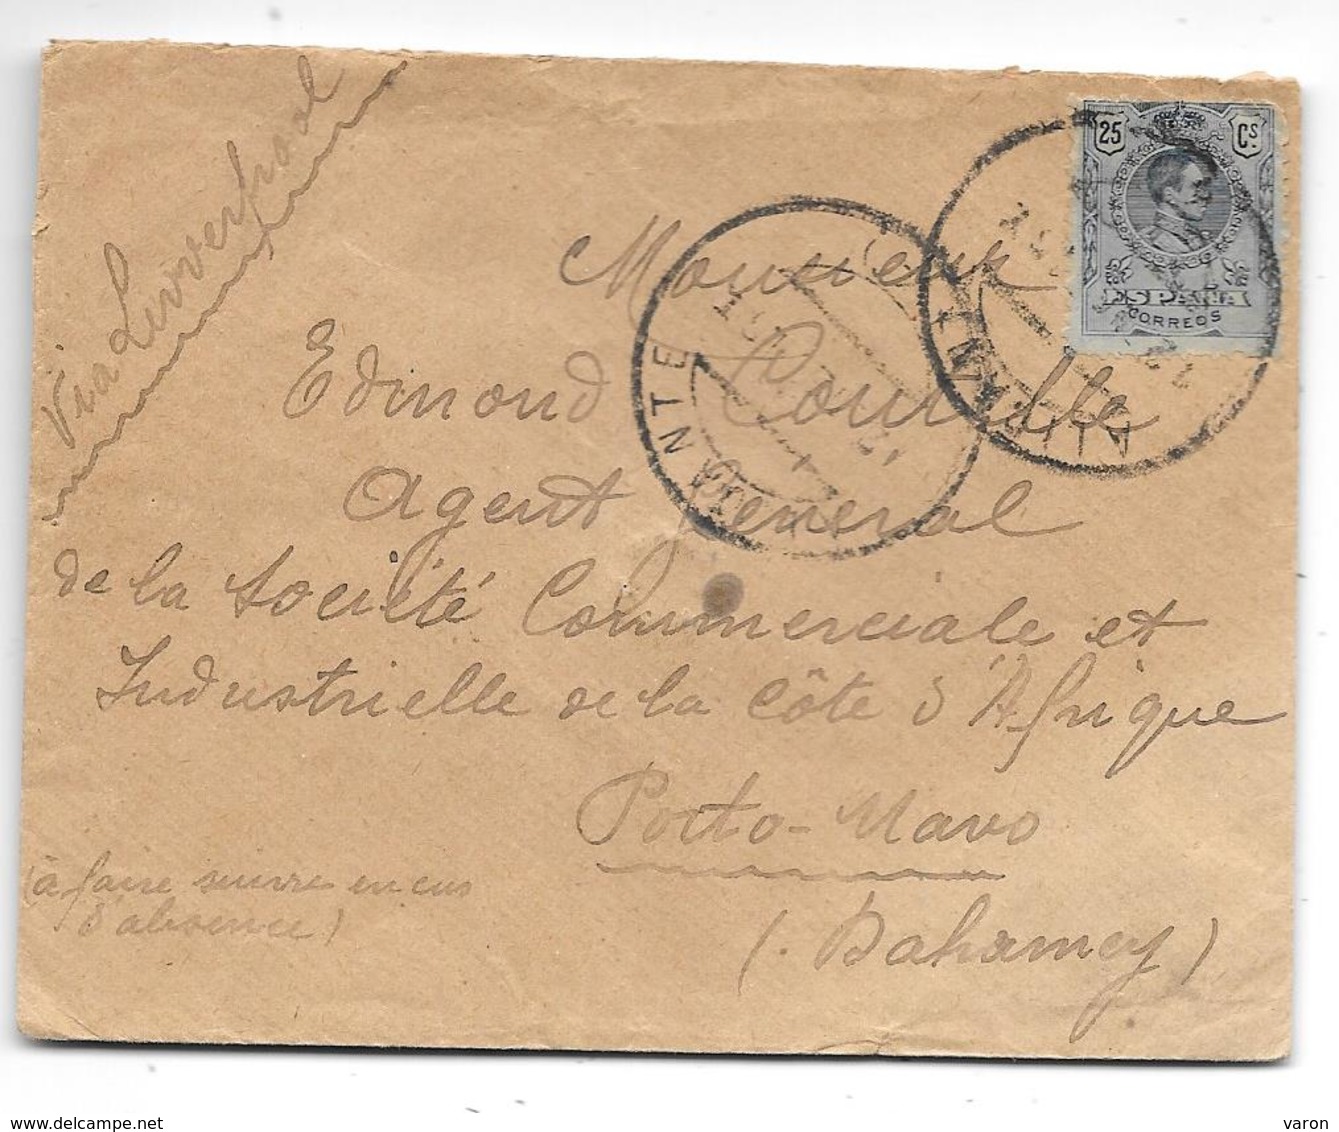 Via Liwerpool
25 Cs
ESPAÑA
CORREOS
ALICANTE
Monsieur
Edmond
Agent General
de la Société Commerciale et
Industrielle de la Côte d'Afrique
Porto-Navo
(à faire suivre en cas
d'absence)
(. Dahamey)
www.delcampe.net
varon